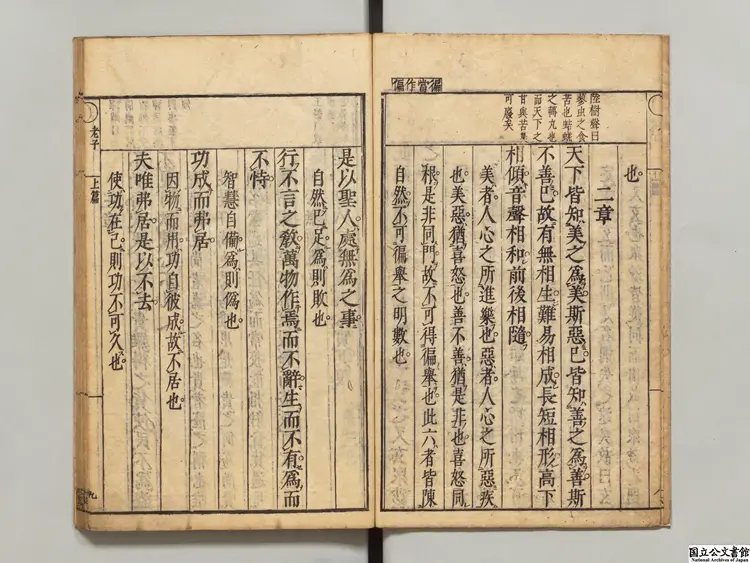 徧當作偏
陸樹聲曰
蓼虫之食
苦也蛣蜣
之轉丸也
而天下之
甘與苦果
可廢矣
也
二章
天下皆知美之爲美斯惡已皆知善之爲善斯
不善已故有無相生難易相成長短相形高下
相傾音聲相和前後相隨
美者人心之所進樂也惡者人心之所惡疾
也美惡猶喜怒也善不善猶是非也喜怒同
根是非同門故不可得徧舉也此六者皆陳
自然不可徧舉之明數也
是以聖人處無爲之事
自然已足爲則敗也
行不言之敎萬物作焉而不辭生而不有爲而
不恃
智慧自備爲則僞也
功成而弗居
因物而用功自彼成故不居也
夫唯弗居是以不去
使功在己則功不可久也
老子 上篇 九
国立公文書館
National Archives of Japan